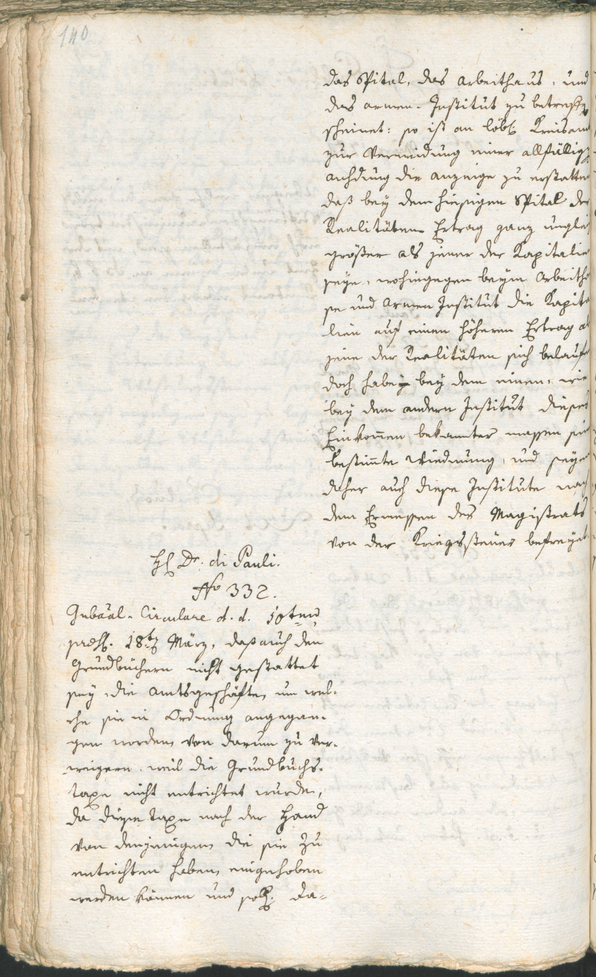 140
das Spital, das Arbeithaus, und
das Armen-Institut zu betreffen
scheinet: so ist an löbl. Kreisamt
zur Vermeidung einer allfälligen
Anhdung die Anzeige zu erstatten
daß bey dem hiesigen Spital der
Realitäten Ertrag ganz ungleich
größer als jener der Kapitalien
seye, wohingegen beym Arbeithau
se und Armen Institut die Kapita
lien auf einen höhern Ertrag als
jene der Realitäten sich belaufen
doch haben bey dem einem, wie
bey dem andern Institut dieses
Einkom̄en bekanter massen seine
bestim̄te Wiedmung, und seyen
daher auch diese Institute nach
dem Ermessen des Magistrats
von der Kriegssteuer befreyet
H. Dr. di Pauli.
No 332.
Gubal-Circulare d. d. 10ten
praes. 18t März, daß auch den
Grundbüchern nicht gestattet
sey, die Amtsgeschäfte, um wel-
che sie in Ordnung angegan-
gen worden, von darum zu ver-
weigern, weil die Grundbuchs-
taxe nicht entrichtet wurde,
da diese Taxe nach der Hand
von denjenigen die sie zu
entrichten haben, eingehoben
werden können und soll. Da-